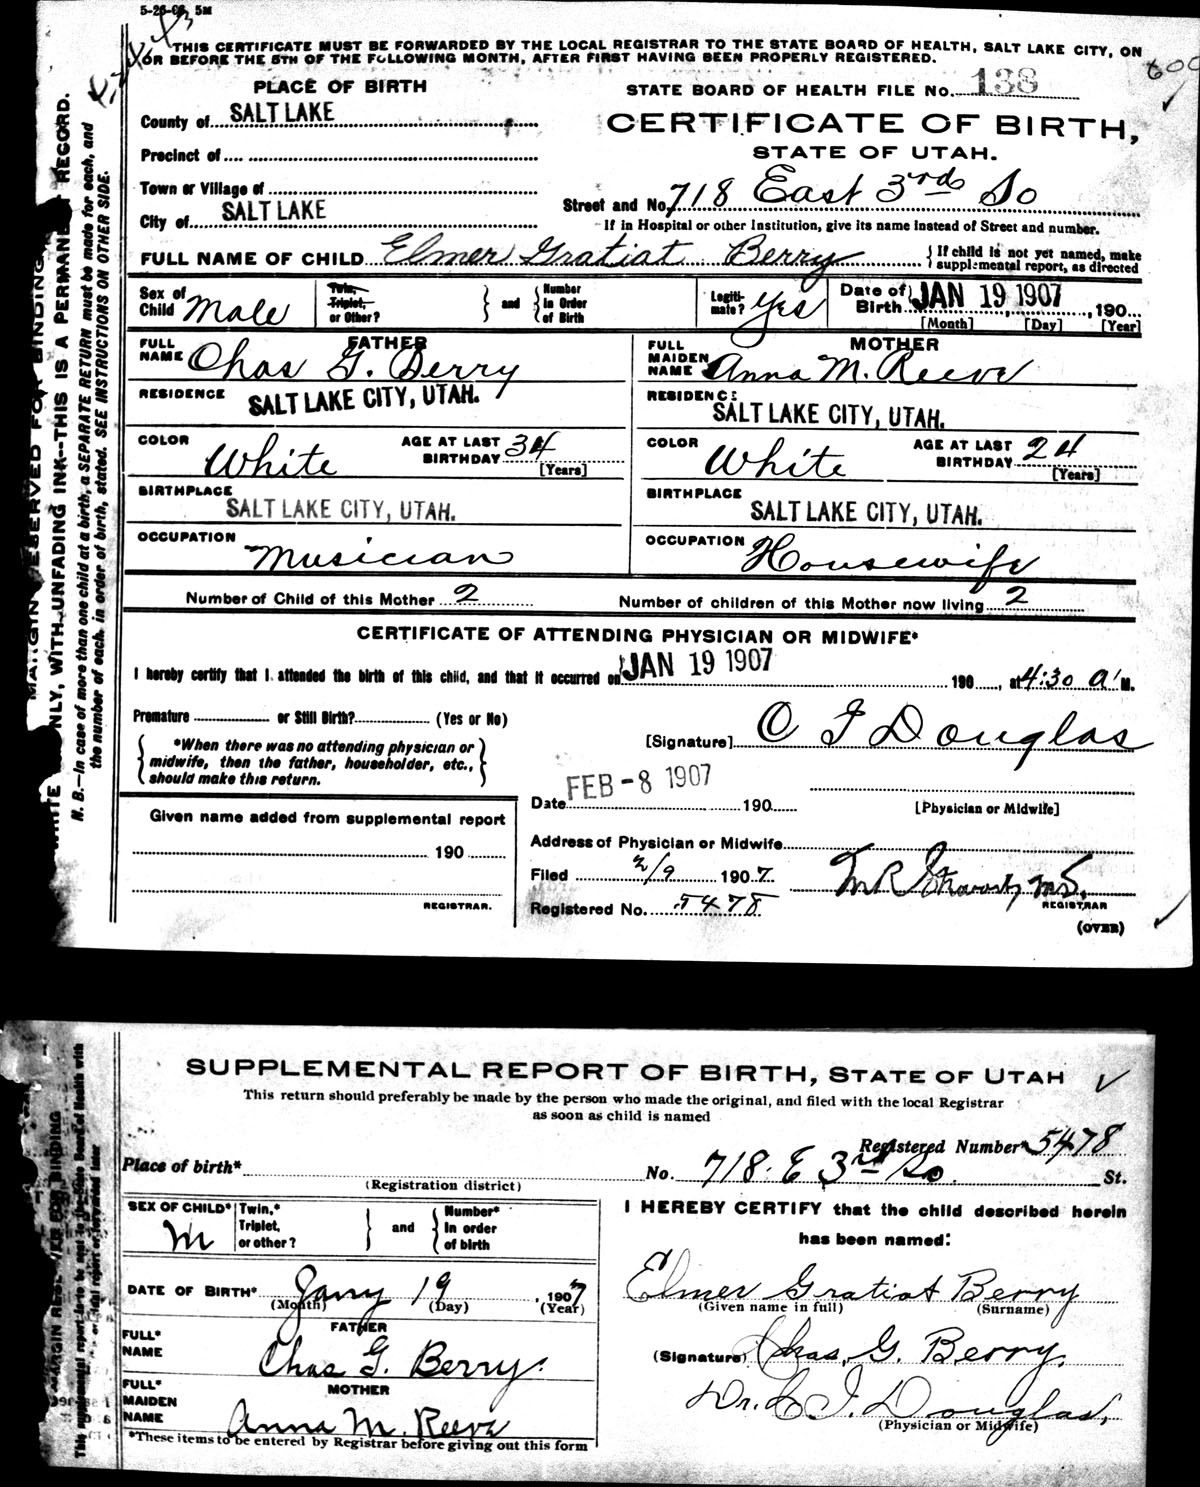 5-26-06, 5M
THIS CERTIFICATE MUST BE FORWARDED BY THE LOCAL REGISTRAR TO THE STATE BOARD OF HEALTH, SALT LAKE CITY, ON
OR BEFORE THE 5TH OF THE FOLLOWING MONTH, AFTER FIRST HAVING BEEN PROPERLY REGISTERED.
PLACE OF BIRTH
STATE BOARD OF HEALTH FILE No. 138
County of SALT LAKE
CERTIFICATE OF BIRTH,
Precinct of
STATE OF UTAH.
Town or Village of
Street and No. 718 East 3rd So
City of SALT LAKE
If in Hospital or other Institution, give its name instead of Street and number.
FULL NAME OF CHILD Elmer Gratiat Berry
{ If child is not yet named, make
supplemental report, as directed
Sex of Child Male
Twin, Triplet, or Other?
and
Number In Order of Birth
Legiti-mate? Yes
Date of Birth JAN 19 1907, 190
[Month] [Day] [Year]
FATHER
FULL NAME Chas G. Berry
RESIDENCE SALT LAKE CITY, UTAH.
COLOR White
AGE AT LAST BIRTHDAY 34 [Years]
BIRTHPLACE SALT LAKE CITY, UTAH.
OCCUPATION Musician
MOTHER
FULL MAIDEN NAME Anna M. Reeve
RESIDENCE SALT LAKE CITY, UTAH.
COLOR White
AGE AT LAST BIRTHDAY 24 [Years]
BIRTHPLACE SALT LAKE CITY, UTAH.
OCCUPATION Housewife
Number of Child of this Mother 2
Number of children of this Mother now living 2
CERTIFICATE OF ATTENDING PHYSICIAN OR MIDWIFE*
I hereby certify that I attended the birth of this child, and that it occurred on JAN 19 1907 190, at 4:30 a M.
Premature or Still Birth? (Yes or No)
[Signature] C F Douglas
{ *When there was no attending physician or
midwife, then the father, householder, etc.,
should make this return. }
Date FEB - 8 1907 190
[Physician or Midwife]
Given name added from supplemental report
190
REGISTRAR.
Address of Physician or Midwife
Filed 2/9 1907
REGISTRAR
Registered No. 5478
(OVER)
RECORD.
ONLY, WITH UNFADING INK--THIS IS A PERMANENT
N. B.--In case of more than one child at a birth, a SEPARATE RETURN must be made for each, and
the number of each, in order of birth, stated. SEE INSTRUCTIONS ON OTHER SIDE.
SUPPLEMENTAL REPORT OF BIRTH, STATE OF UTAH
This return should preferably be made by the person who made the original, and filed with the local Registrar
as soon as child is named
Registered Number* 5478
Place of birth*
No. 718 E 3rd So St.
(Registration district)
SEX OF CHILD* M
Twin,* Triplet, or other?
and
Number* In order of birth
DATE OF BIRTH* Jany 19, 1907
(Month) (Day) (Year)
FATHER
FULL* NAME Chas G. Berry.
MOTHER
FULL* MAIDEN NAME Anna M. Reeve
*These items to be entered by Registrar before giving out this form
I HEREBY CERTIFY that the child described herein
has been named:
Elmer Gratiat Berry
(Given name in full) (Surname)
(Signature) Chas. G. Berry.
Dr. C F. Douglas,
(Physician or Midwife)